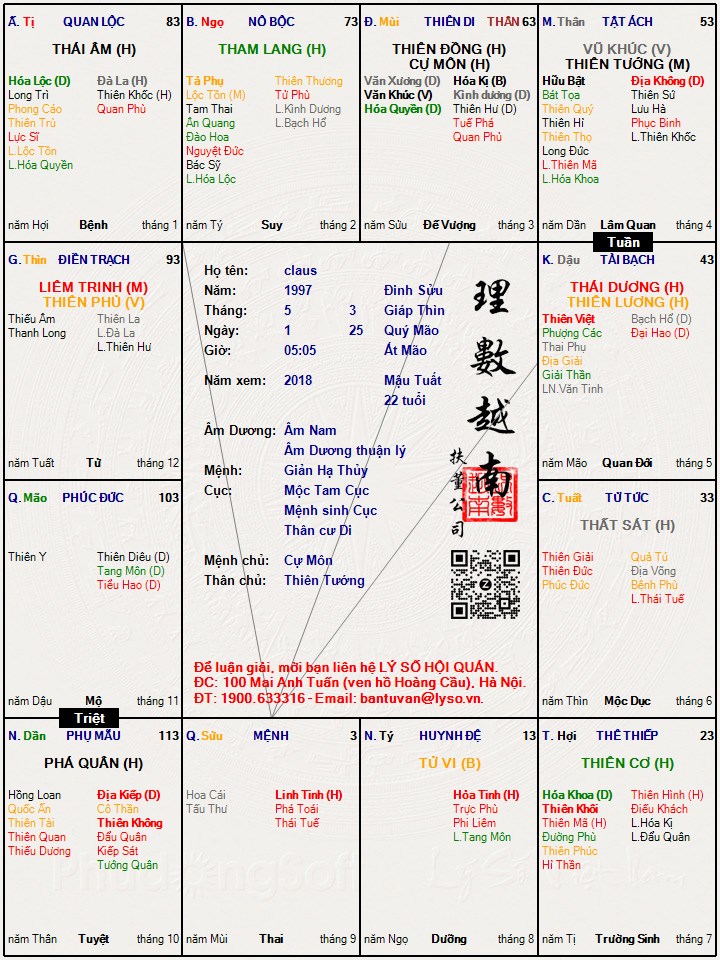 Ấ. Tị QUAN LỘC 83
THÁI ÂM (H)
Hóa Lộc (D) Đà La (H)
Long Trì Thiên Khốc (H)
Phong Cáo Quan Phù
Thiên Trù
Lực Sĩ
L.Lộc Tồn
L.Hóa Quyền
năm Hợi Bệnh tháng 1
B. Ngọ NÔ BỘC 73
THAM LANG (H)
Tả Phụ Thiên Thương
Lộc Tồn (M) Tử Phù
Tam Thai L.Kình Dương
Ân Quang L.Bạch Hổ
Đào Hoa
Nguyệt Đức
Bác Sỹ
L.Hóa Lộc
năm Tý Suy tháng 2
Đ. Mùi THIÊN DI THÂN 63
THIÊN ĐỒNG (H)
CỰ MÔN (H)
Văn Xương (D) Hóa Kị (B)
Văn Khúc (V) Kình dương (D)
Hóa Quyền (D) Thiên Hư (D)
Tuế Phá
Quan Phủ
năm Sửu Đế Vượng tháng 3
M. Thân TẬT ÁCH 53
VŨ KHÚC (V)
THIÊN TƯỚNG (M)
Hữu Bật Địa Không (D)
Bát Tọa Thiên Sứ
Thiên Quý Lưu Hà
Thiên Hỉ Phục Binh
Thiên Thọ L.Thiên Khốc
Long Đức
L.Thiên Mã
L.Hóa Khoa
năm Dần Lâm Quan tháng 4
Tuần
G. Thìn ĐIỀN TRẠCH 93
LIÊM TRINH (M)
THIÊN PHỦ (V)
Thiếu Âm Thiên La
Thanh Long L.Đà La
L.Thiên Hư
năm Tuất Tử tháng 12
Họ tên: claus
Năm: 1997 Đinh Sửu
Tháng: 5 3 Giáp Thìn
Ngày: 1 25 Quý Mão
Giờ: 05:05 Ất Mão
Năm xem: 2018 Mậu Tuất
22 tuổi
Âm Dương: Âm Nam
Âm Dương thuận lý
Mệnh: Giản Hạ Thủy
Cục: Mộc Tam Cục
Mệnh sinh Cục
Thân cư Di
Mệnh chủ: Cự Môn
Thân chủ: Thiên Tướng
理數越南
扶董公司
Z
Để luận giải, mời bạn liên hệ LÝ SỐ HỘI QUÁN.
ĐC: 100 Mai Anh Tuấn (ven hồ Hoàng Cầu), Hà Nội.
ĐT: 1900.633316 - Email: bantuvan@lyso.vn.
K. Dậu TÀI BẠCH 43
THÁI DƯƠNG (H)
THIÊN LƯƠNG (H)
Thiên Việt Bạch Hổ (D)
Phượng Các Đại Hao (D)
Thai Phụ
Địa Giải
Giải Thần
LN.Văn Tinh
năm Mão Quan Đới tháng 5
Q. Mão PHÚC ĐỨC 103
Thiên Y Thiên Diêu (D)
Tang Môn (D)
Tiểu Hao (D)
năm Dậu Mộ tháng 11
Triệt
C. Tuất TỬ TỨC 33
THẤT SÁT (H)
Thiên Giải Quả Tú
Thiên Đức Địa Võng
Phúc Đức Bệnh Phù
L.Thái Tuế
năm Thìn Mộc Dục tháng 6
N. Dần PHỤ MẪU 113
PHÁ QUÂN (H)
Hồng Loan Địa Kiếp (D)
Quốc Ấn Cô Thần
Thiên Tài Thiên Không
Thiên Quan Đẩu Quân
Thiếu Dương Kiếp Sát
Tướng Quân
năm Thân Tuyệt tháng 10
Q. Sửu MỆNH 3
Hoa Cái Linh Tinh (H)
Tấu Thư Phá Toái
Thái Tuế
năm Mùi Thai tháng 9
N. Tý HUYNH ĐỆ 13
TỬ VI (B)
Hỏa Tinh (H)
Trực Phù
Phi Liêm
L.Tang Môn
năm Ngọ Dưỡng tháng 8
T. Hợi THÊ THIẾP 23
THIÊN CƠ (H)
Hóa Khoa (D) Thiên Hình (H)
Thiên Khôi Điếu Khách
Thiên Mã (H) L.Hóa Kị
Đường Phù L.Đẩu Quân
Thiên Phúc
Hỉ Thần
năm Tị Trường Sinh tháng 7